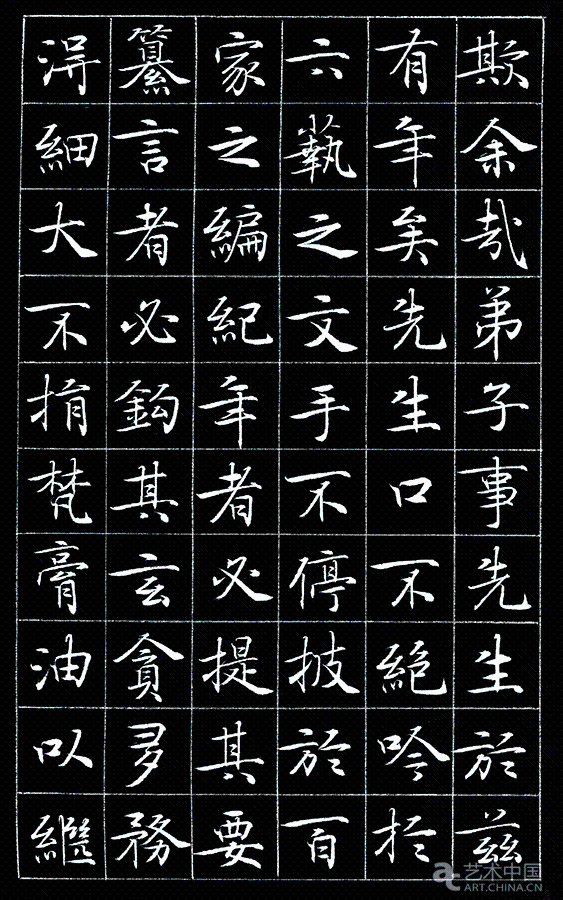 欺余哉弟子事先生於茲
有年矣先生口不絶吟扵
六藝之文手不停披於百
家之編紀年者必提其要
纂言者必鈎其玄貪多務
得細大不捐焚膏油以繼
艺术中国
ART.CHINA.CN